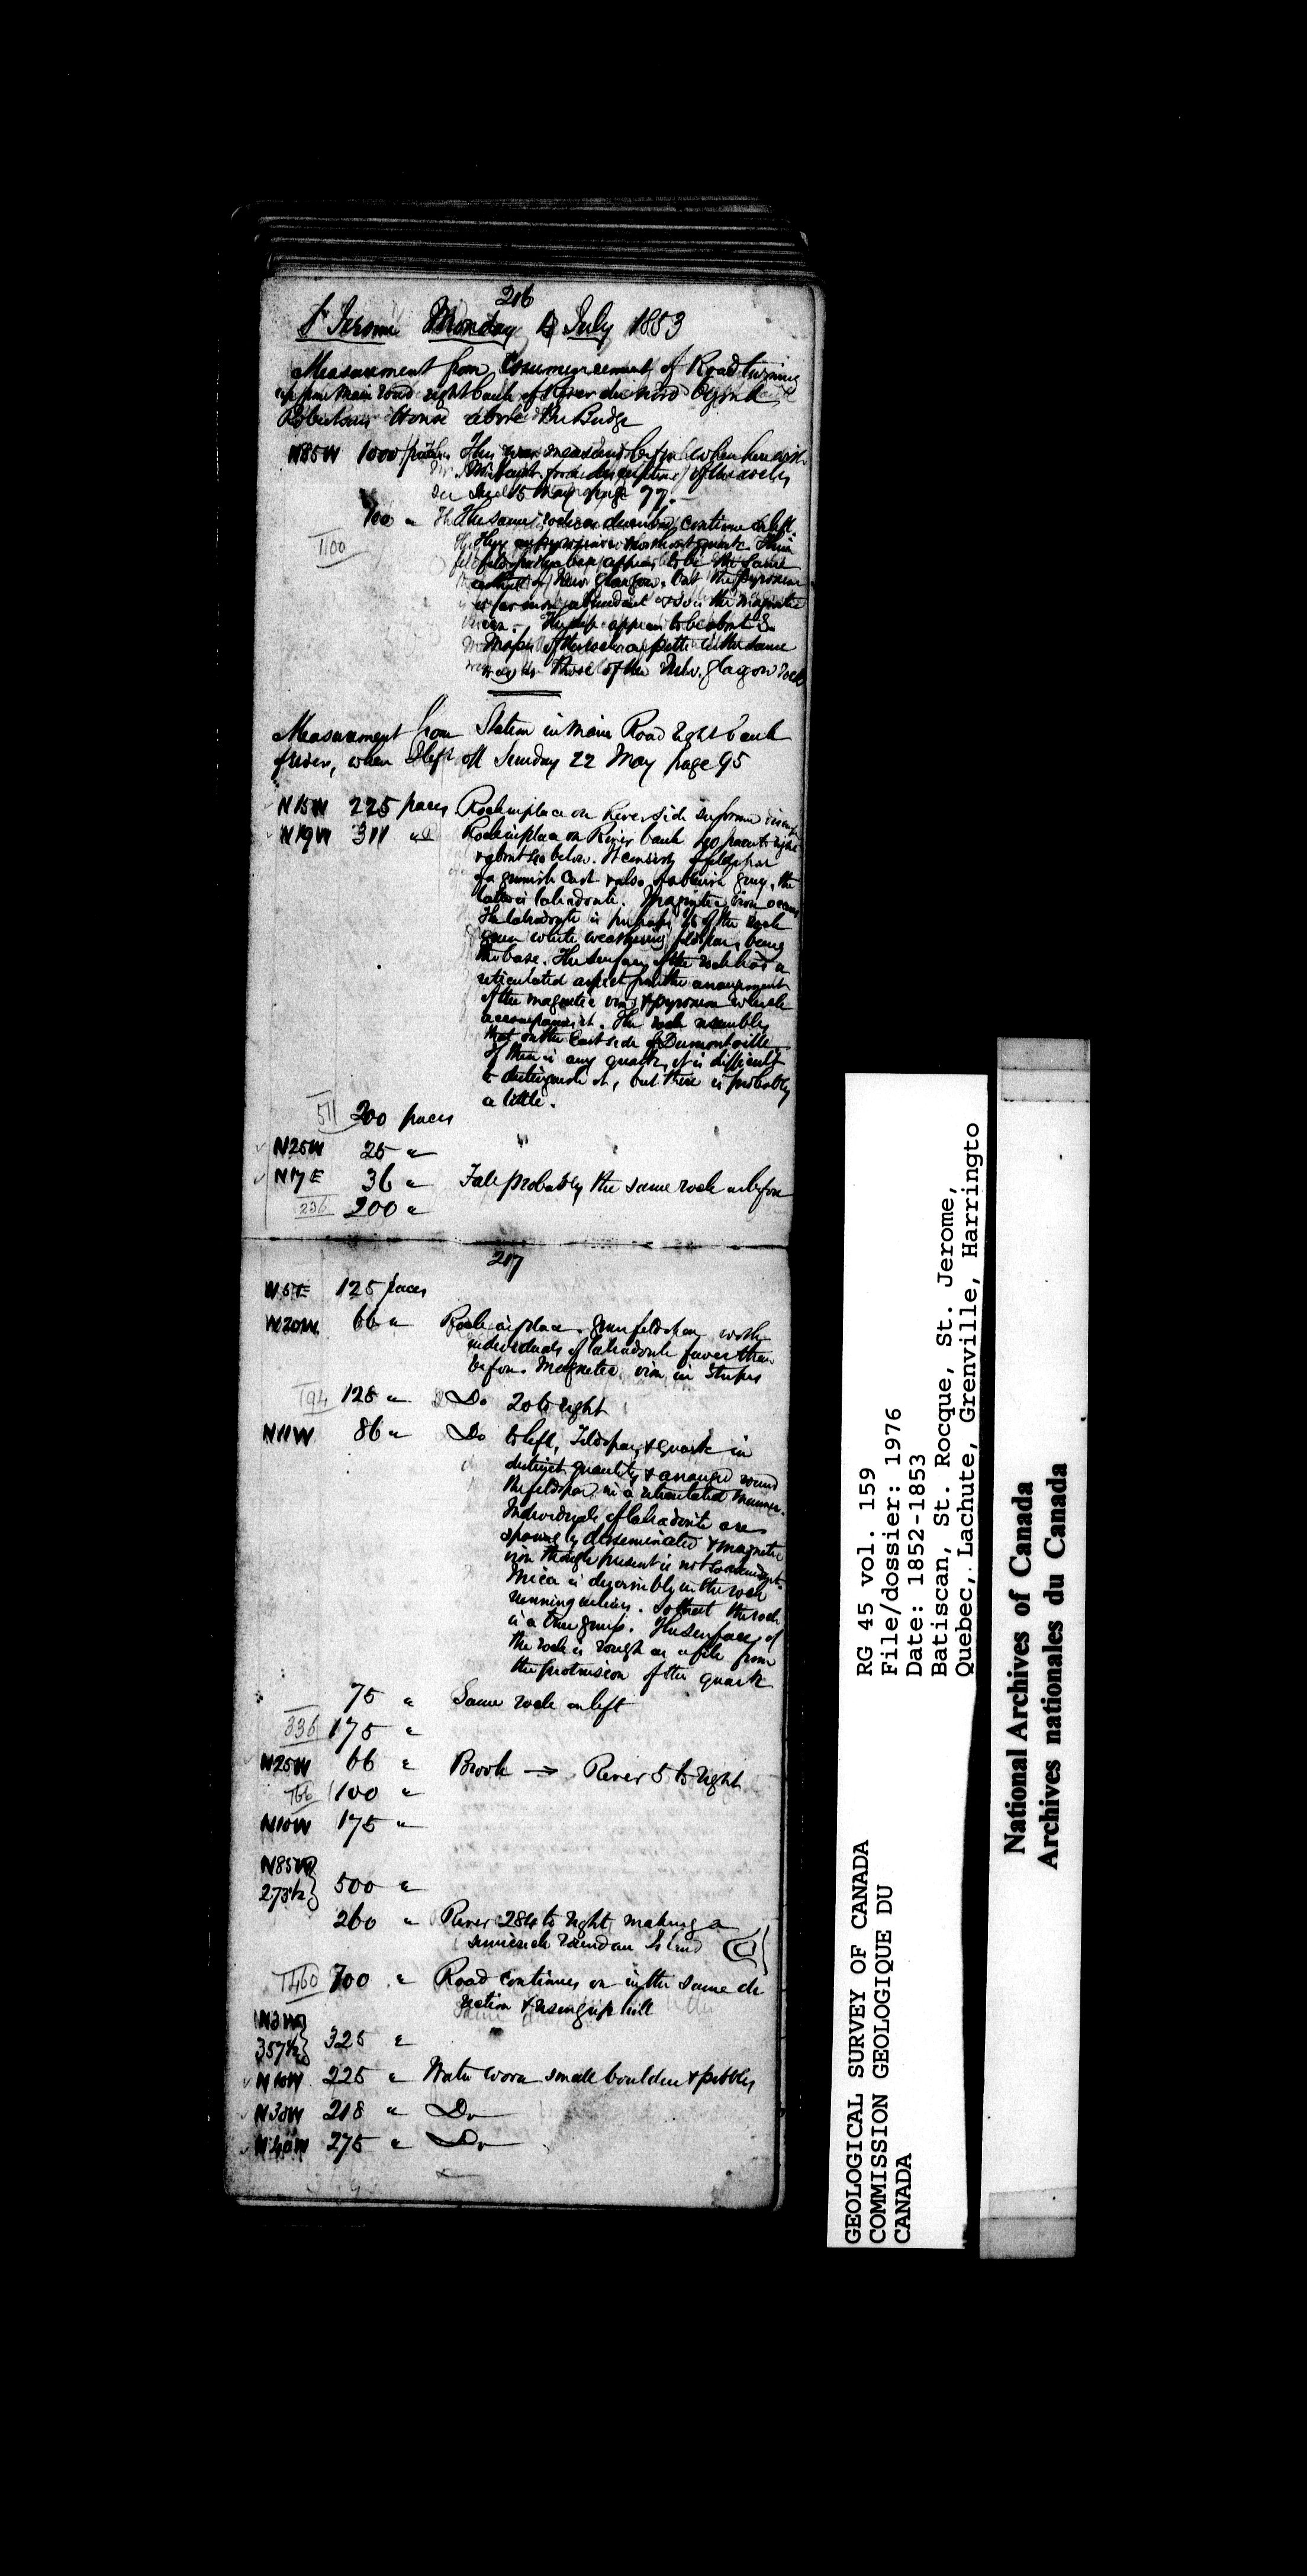 216
St Jerome Monday 4 July 1853
Measurement from Commencement of Road turning
up from Main road right bank of River du Nord by
Robertsons House above the Bridge
N85W 1000 paces This was measured before when here with
Mr. for description of the rocks
see 15 May page 77.
100 " The same rock as described continue on left
1100
feldspathic appears to be the same
as that of New Glasgow, but the pyroxene
is far more abundant & so is the magnetic
iron. The dip appears to be about
of the rock in the same
way as those of the New Glasgow rock
Measurement from Station in Main Road right bank
of river, when I left off Sunday 22 May page 95
N15W 225 paces Rock in place on River side
N19W 311 " Rock in place on River bank paces to right
& about 40 below. It consists of feldspar
of a greenish cast & also of a bluish grey, the
latter is labradorite. Magnetic iron occurs
The labradorite is perhaps of the rock
green white weathering feldspar, being
the base. The surface of the rock has a
reticulated aspect from the arrangement
of the magnetic iron & pyroxene which
accompanies it. The rock resembles
that on the East side of Dumontville.
If there is any quartz, it is difficult
to distinguish it, but there is probably
a little.
511 200 paces
N25W 25 "
N17E 36 " Fall probably the same rock as before
236 200 "
217
N5E 125 paces
N20W 66 " Rock in place. Green feldspar with
individuals of labradorite fewer than
before. Magnetic iron in stripes
194 128 " Do 20 to right
N11W 86 " Do to left, Feldspar, & quartz in
distinct quantity & arranged round
the feldspar in a reticulated manner.
Individuals of labradorite are
sparingly disseminated & magnetic
iron though present is not so abundant.
Mica is discernible in the rock
running in lines. So that the rock
is a true gneiss. The surface of
the rock is rough as a file from
the protrusion of the quartz
75 " Same rock on left
336 175 "
N25W 66 " Brook → River 5 to right
166 100 "
N10W 175 "
N85W
273½ } 500 "
260 " River 284 to right, making a
semicircle round an Island
1460 700 " Road continues on in the same di
rection & rising up hill
N3W
357½ } 325 "
N10W 225 " Water worn small boulders & pebbles
N30W 218 " Do
N40W 275 " Do
RG 45 vol. 159
File/dossier: 1976
Date: 1852-1853
Batiscan, St. Rocque, St. Jerome,
Quebec, Lachute, Grenville, Harringto
GEOLOGICAL SURVEY OF CANADA
COMMISSION GEOLOGIQUE DU
CANADA
National Archives of Canada
Archives nationales du Canada